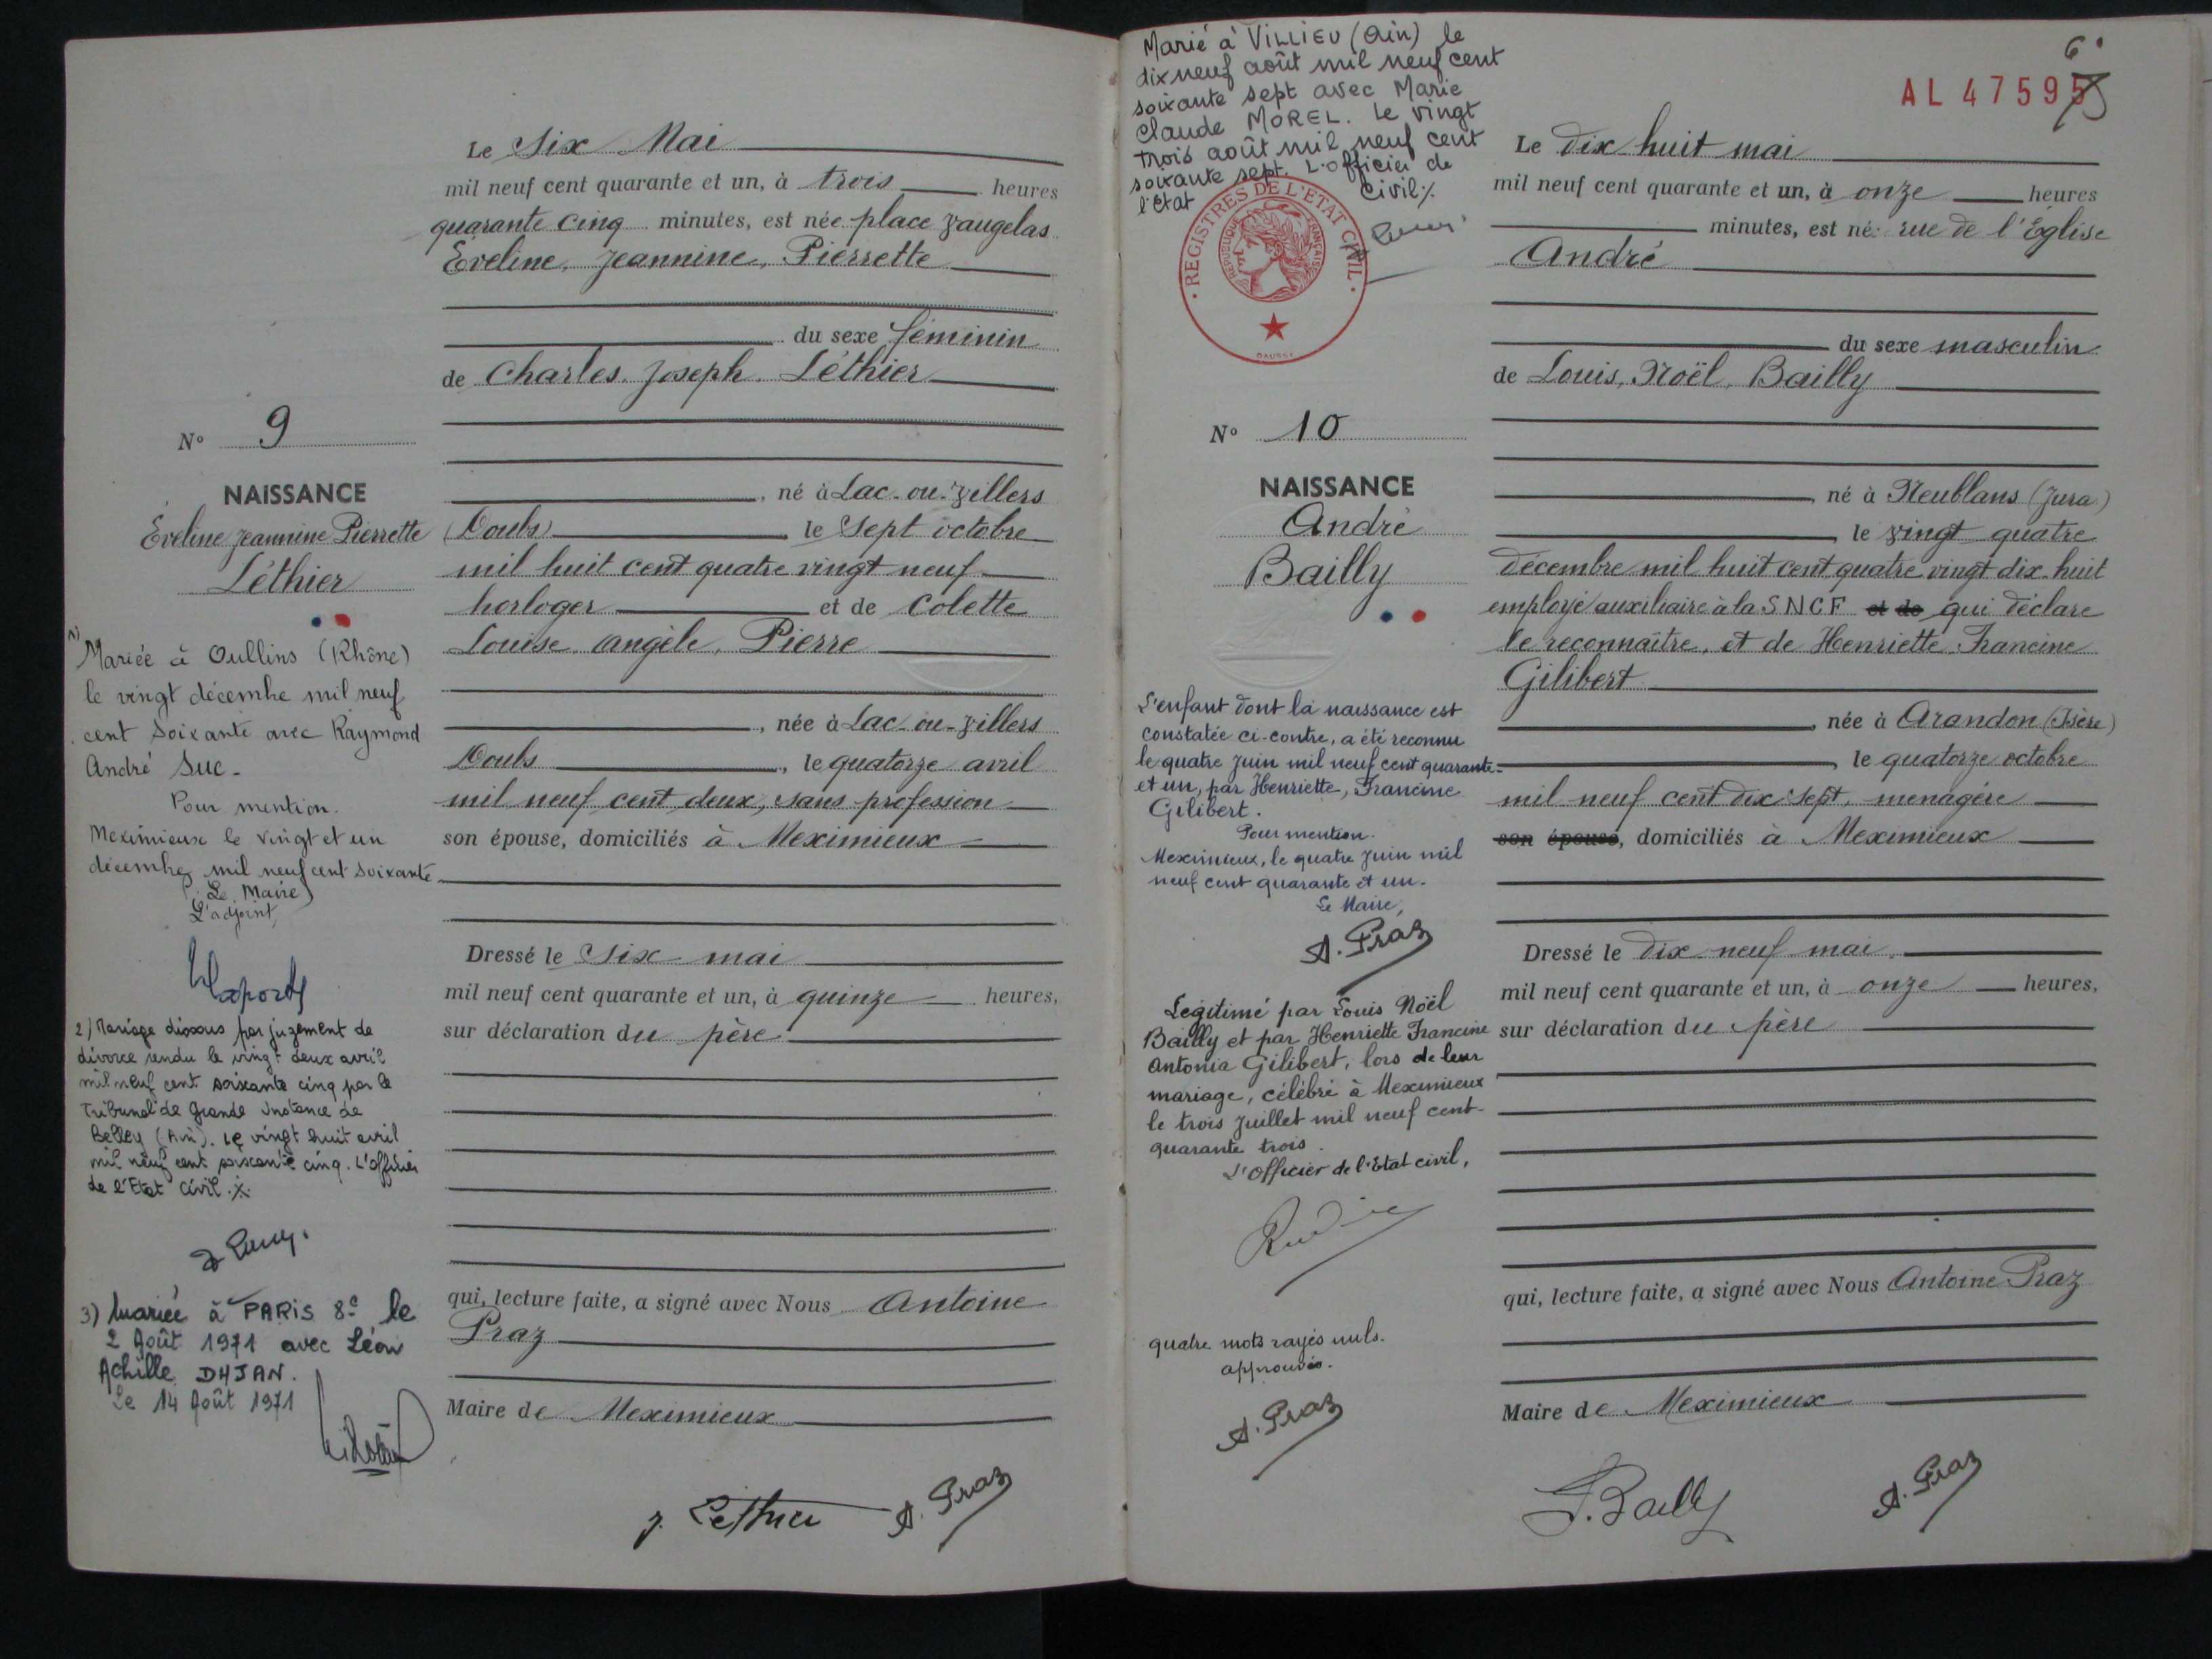 Le Six Mai
mil neuf cent quarante et un, à trois heures
quarante cinq minutes, est née place Vaugelas
Eveline, Jeannine, Pierrette
du sexe féminin
de Charles Joseph Léthier
né à Lac-ou-Villers
(Doubs) le Sept octobre
mil huit cent quatre vingt neuf
horloger et de Colette
Louise Angèle, Pierre
, née à Lac-ou-Villers
Doubs, le quatorze avril
mil neuf cent deux, sans profession
son épouse, domiciliés à Meximieux
Dressé le Six mai
mil neuf cent quarante et un, à quinze heures,
sur déclaration du père
qui, lecture faite, a signé avec Nous Antoine
Praz
Maire de Meximieux
J. Lethier A. Praz
N° 9
NAISSANCE
Eveline Jeannine Pierrette
Léthier
1)
Mariée à Oullins (Rhône)
le vingt décembre mil neuf
cent soixante avec Raymond
André Suc.
Pour mention.
Meximieux le vingt et un
décembre mil neuf cent soixante
Le Maire
L'adjoint,
2) Mariage dissous par jugement de
divorce rendu le vingt deux avril
mil neuf cent soixante cinq par le
Tribunal de Grande Instance de
Belley (Ain). Le vingt huit avril
mil neuf cent soixante cinq. L'officier
de l'Etat Civil.
3) Mariée à PARIS 8e le
2 Août 1971 avec Léon
Achille DHJAN.
Le 14 Août 1971
Marié à VILLIEU (Ain) le
dix neuf août mil neuf cent
soixante sept avec Marie
Claude MOREL. Le vingt
trois août mil neuf cent
soixante sept. L'officier de
l'Etat civil
REGISTRES DE L'ETAT CIVIL
REPUBLIQUE FRANÇAISE
6
AL 47595
N° 10
NAISSANCE
André
Bailly
L'enfant dont la naissance est
constatée ci-contre, a été reconnu
le quatre juin mil neuf cent quarante-
et un, par Henriette, Francine
Gilibert.
Pour mention.
Meximieux, le quatre juin mil
neuf cent quarante et un.
Le Maire,
A. Praz
Légitimé par Louis Noël
Bailly et par Henriette Francine
Antonia Gilibert, lors de leur
mariage, célébré à Meximieux
le trois juillet mil neuf cent-
quarante trois.
L'officier de l'Etat civil,
quatre mots rayés nuls.
approuvés.
A. Praz
Le Dix huit mai
mil neuf cent quarante et un, à onze heures
minutes, est né rue de l'Eglise
André
du sexe masculin
de Louis, Noël, Bailly
né à Neublans (Jura)
le vingt quatre
décembre mil huit cent quatre vingt dix huit
employé auxiliaire à la SNCF et de qui déclare
le reconnaître, et de Henriette Francine
Gilibert
, née à Arandon (Isère)
le quatorze octobre
mil neuf cent dix sept, ménagère
son épouse, domiciliés à Meximieux
Dressé le Dix neuf mai
mil neuf cent quarante et un, à onze heures,
sur déclaration du père
qui, lecture faite, a signé avec Nous Antoine Praz
Maire de Meximieux
L. Bailly A. Praz